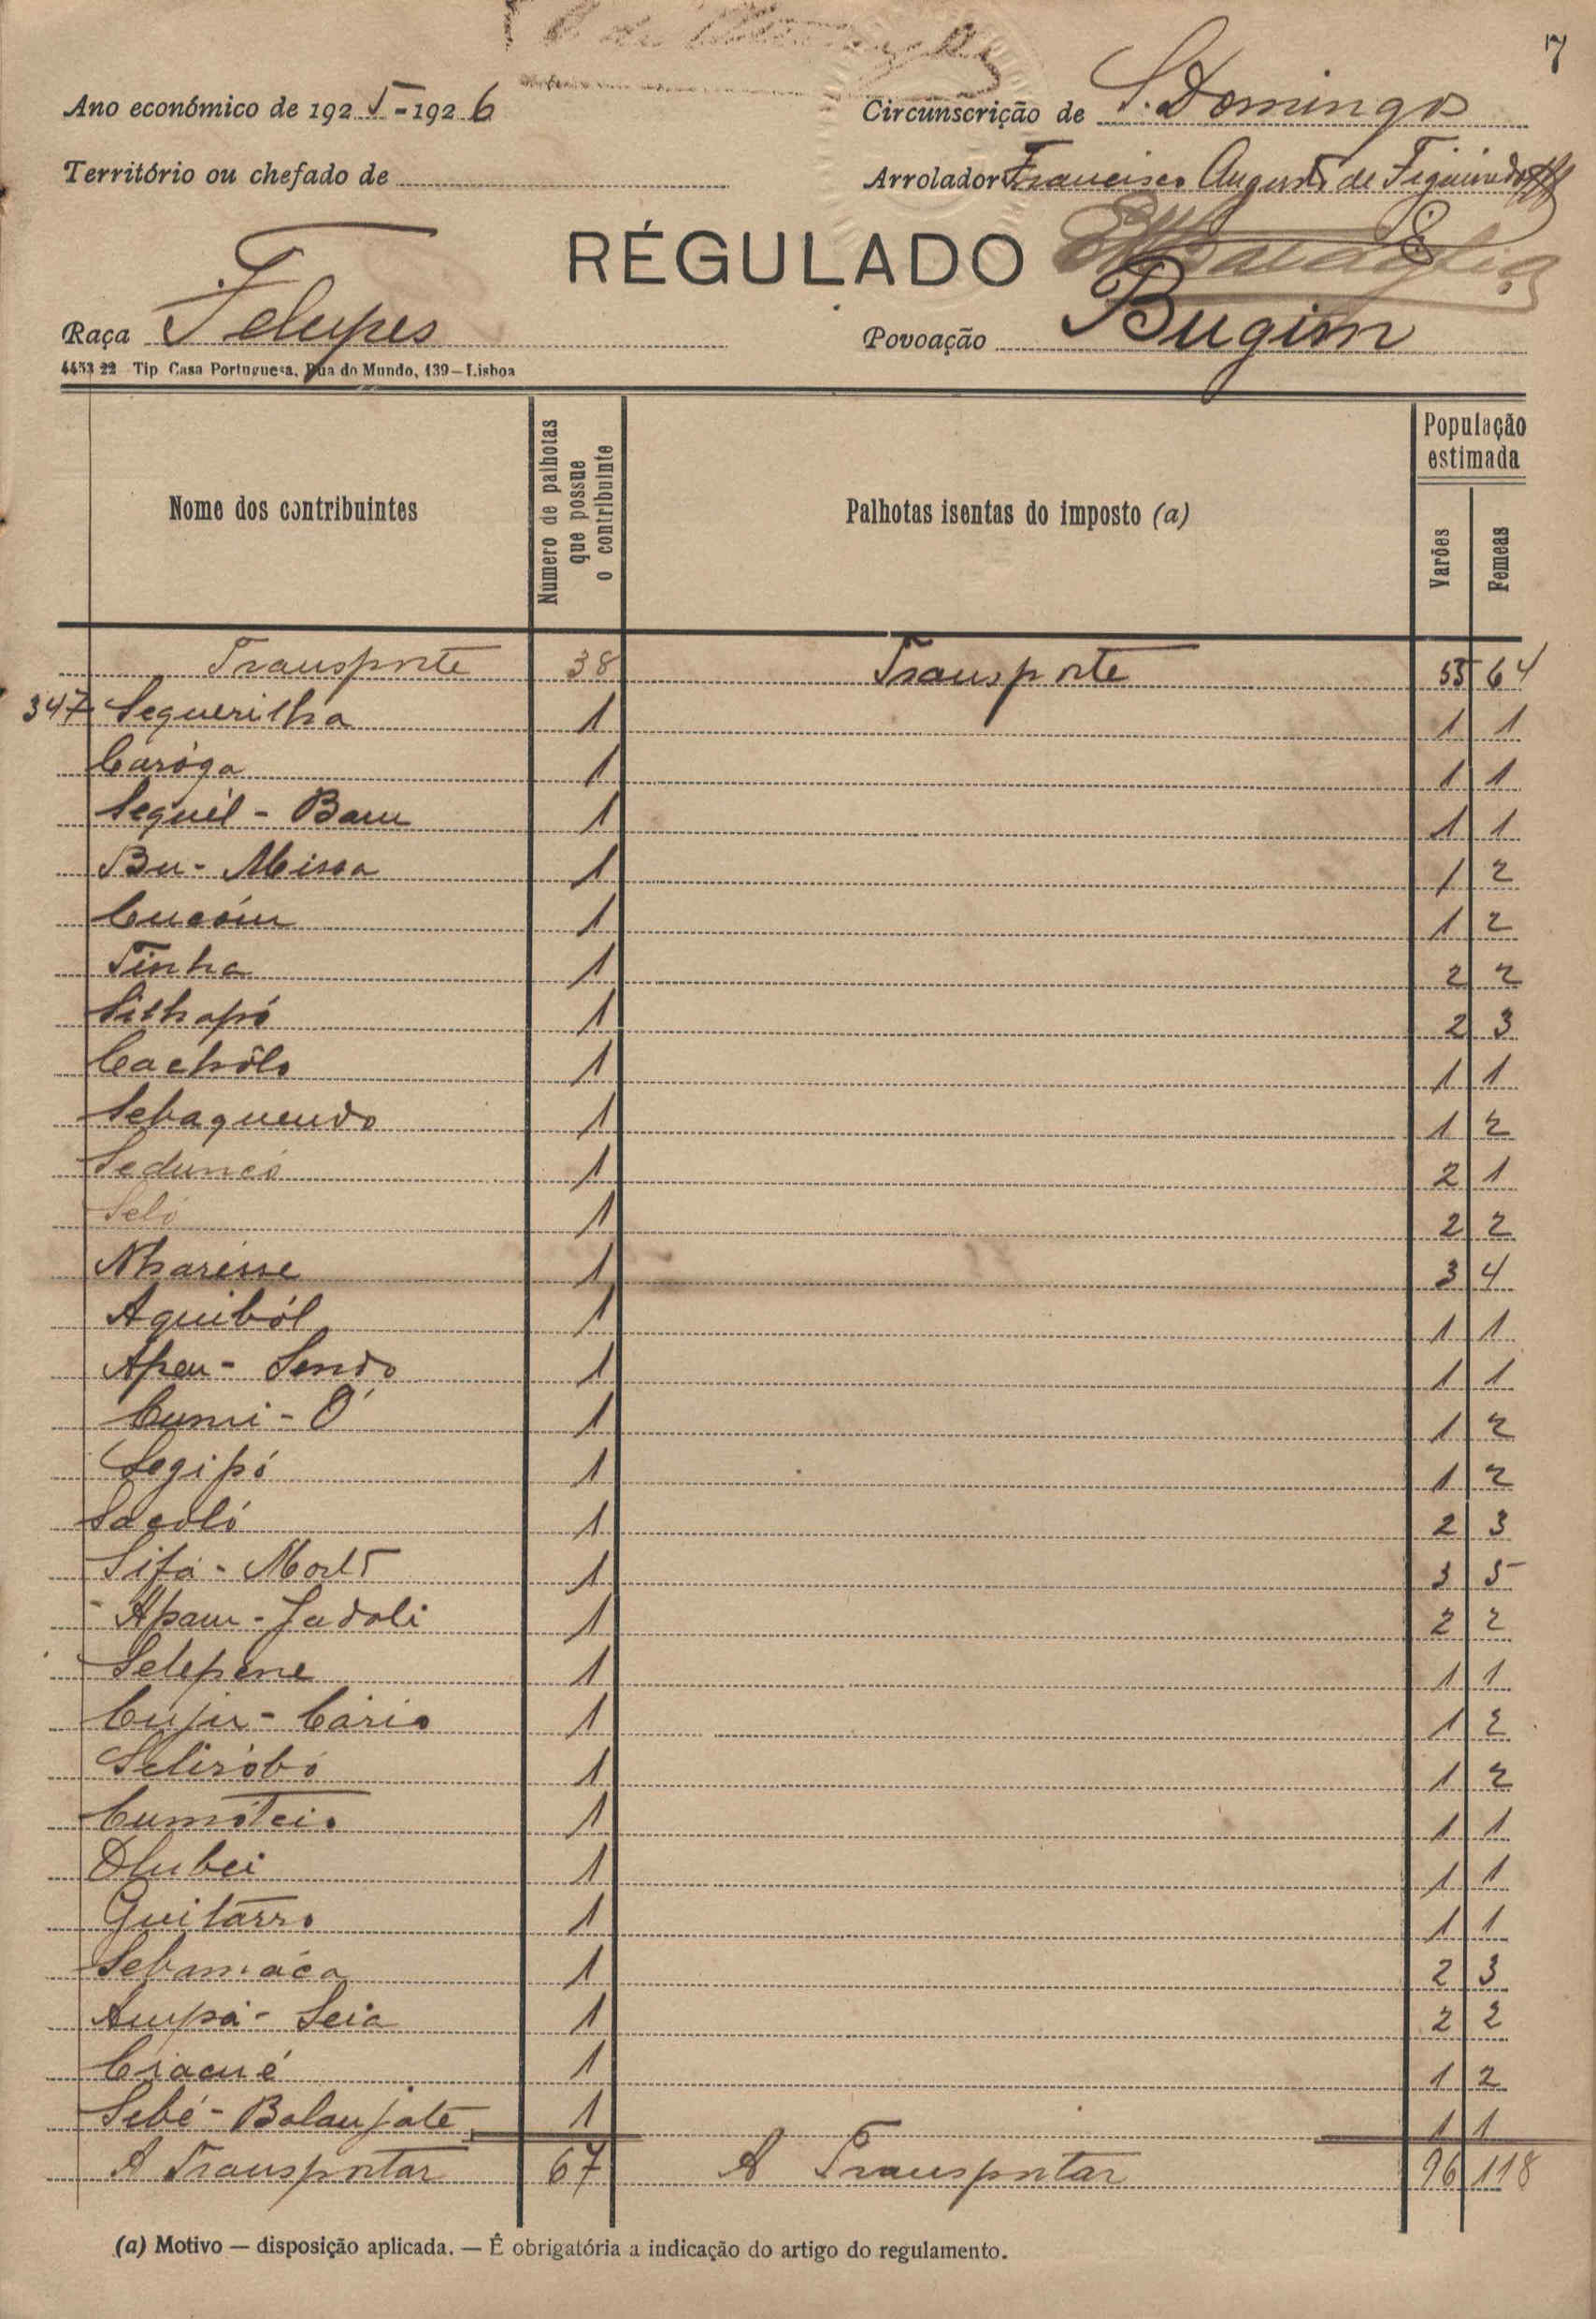 7
Ano económico de 1925-1926
Circunscrição de S. Domingos
Território ou chefado de
Arrolador Francisco Augusto de Figueiredo
RÉGULADO
Raça Felupes
Povoação Bugim
4453 22 Tip Casa Portuguesa, Rua do Mundo, 139—Lisboa
Nome dos contribuintes
Numero de palhotas que possue o contribuinte
Palhotas isentas do imposto (a)
População estimada
Varões
Femeas
Transporte 38 Transporte 55 64
347 Sequerilha 1 1 1
Caróga 1 1 1
Sequél - Bam 1 1 1
Bu - Missa 1 1 2
Cucóm 1 1 2
Tinha 1 2 2
Silhapó 1 2 3
Cachôlo 1 1 1
Sebaquendo 1 1 2
Seduncó 1 2 1
Seló 1 2 2
Nharésse 1 3 4
Aquiból 1 1 1
Apeu - Sendo 1 1 1
Cumi - Ó 1 1 2
Segipó 1 1 2
Sacoló 1 2 3
Sifá - Morto 1 3 5
Apam - Jadoli 1 2 2
Selepene 1 1 1
Cuju - Cário 1 1 2
Seliróbó 1 1 2
Cumóteio 1 1 1
Dlubei 1 1 1
Guitarro 1 1 1
Sebamáca 1 2 3
Ampá - Seia 1 2 2
Ciacué 1 1 2
Sebé - Balanjate 1 1 1
A Transportar 67 A Transportar 96 118
(a) Motivo — disposição aplicada. — É obrigatória a indicação do artigo do regulamento.